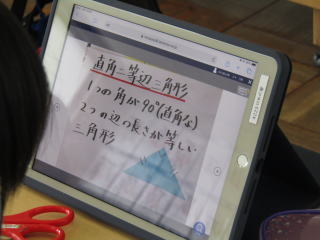 直角二等辺三角形
1つの角が90°(直角な)
2つの辺の長さが等しい
三角形